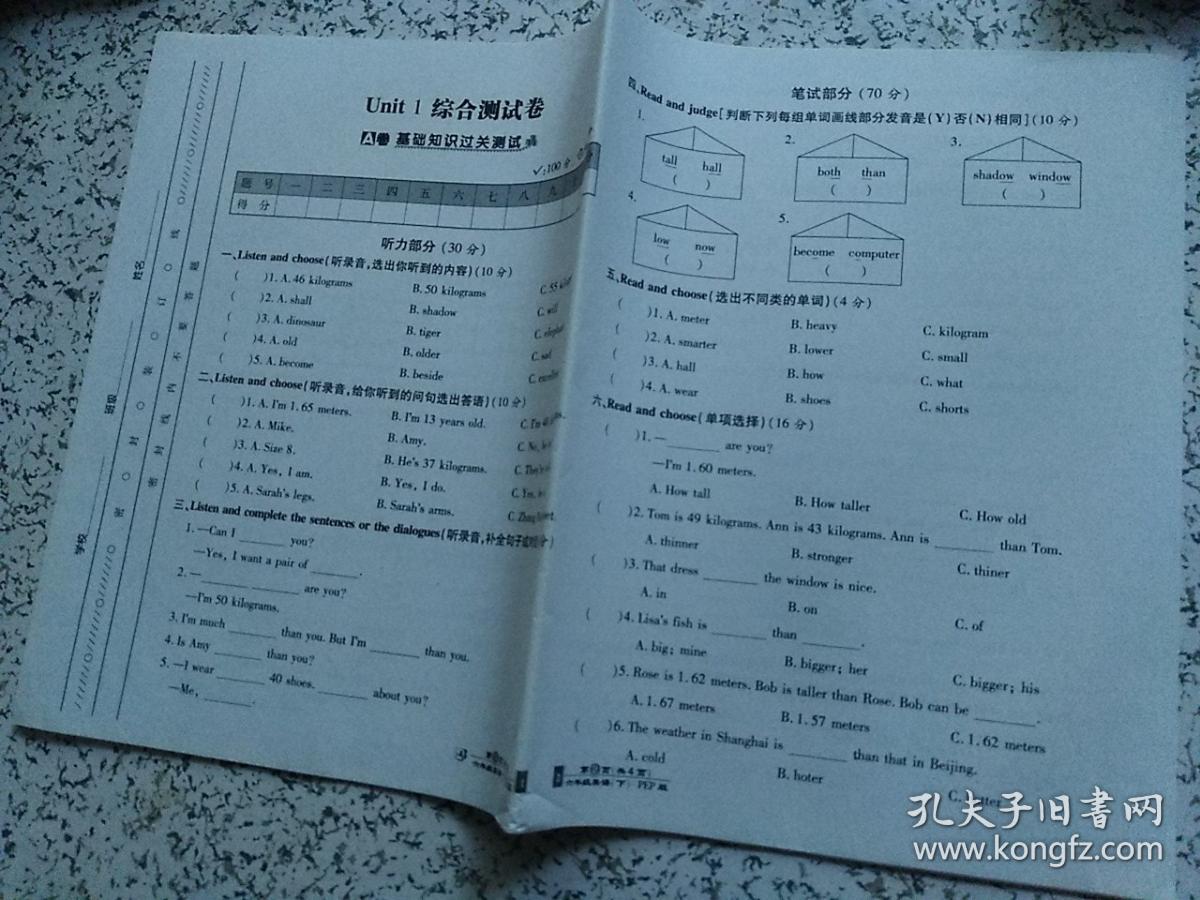 Unit 1 综合测试卷
A卷 基础知识过关测试
√:100分
题号 一 二 三 四 五 六 七 八 九
得分
听力部分(30分)
一、Listen and choose(听录音,选出你听到的内容)(10分)
( )1. A. 46 kilograms B. 50 kilograms C. 55
( )2. A. shall B. shadow C. will
( )3. A. dinosaur B. tiger C. elephant
( )4. A. old B. older C. sad
( )5. A. become B. beside C. excellent
二、Listen and choose(听录音,给你听到的问句选出答语)(10分)
( )1. A. I'm 1.65 meters. B. I'm 13 years old. C. I'm
( )2. A. Mike. B. Amy. C. No,
( )3. A. Size 8. B. He's 37 kilograms. C.
( )4. A. Yes, I am. B. Yes, I do. C. Yes,
( )5. A. Sarah's legs. B. Sarah's arms. C.
三、Listen and complete the sentences or the dialogues(听录音,补全句子或
1. —Can I ______ you?
—Yes, I want a pair of ______.
2. —______ ______ are you?
—I'm 50 kilograms.
3. I'm much ______ than you. But I'm ______ than you.
4. Is Amy ______ than you?
5. —I wear ______ 40 shoes. ______ about you?
—Me, ______.
姓名
班级
学校
密 封 装 订 线
密 封 线 内 不 要 答 题
笔试部分(70分)
四、Read and judge[判断下列每组单词画线部分发音是(Y)否(N)相同](10分)
1. 2. 3.
tall hall both than shadow window
( ) ( ) ( )
4. 5.
low now become computer
( ) ( )
五、Read and choose(选出不同类的单词)(4分)
( )1. A. meter B. heavy C. kilogram
( )2. A. smarter B. lower C. small
( )3. A. hall B. how C. what
( )4. A. wear B. shoes C. shorts
六、Read and choose(单项选择)(16分)
( )1. —______ are you?
—I'm 1.60 meters.
A. How tall B. How taller C. How old
( )2. Tom is 49 kilograms. Ann is 43 kilograms. Ann is ______ than Tom.
A. thinner B. stronger C. thiner
( )3. That dress ______ the window is nice.
A. in B. on C. of
( )4. Lisa's fish is ______ than ______.
A. big; mine B. bigger; her C. bigger; his
( )5. Rose is 1.62 meters. Bob is taller than Rose. Bob can be ______.
A. 1.67 meters B. 1.57 meters C. 1.62 meters
( )6. The weather in Shanghai is ______ than that in Beijing.
A. cold B. hoter C.
共4页
六年级英语(下) PEP版
孔夫子旧书网
www.kongfz.com